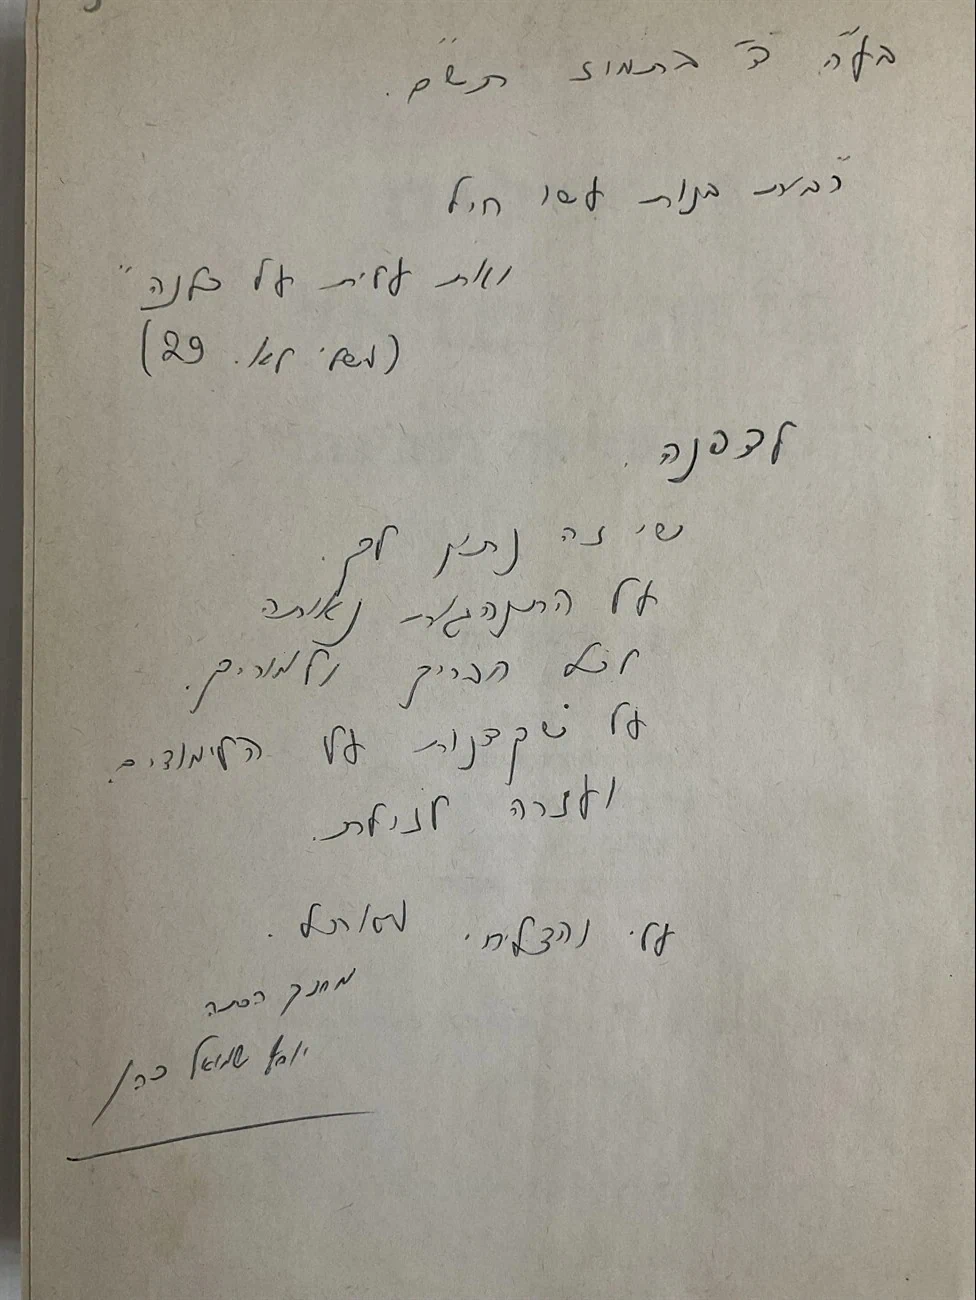 בע"ה ד' בתמוז תש"ם.
"רבות בנות עשו חיל
ואת עלית על כלנה"
(משלי לא. 29)
לדפנה.
שי זה נתון לך.
על התנהגות נאותה
לכל חבריך ולמורים.
על שקדנות על הלימודים
ועזרה לזולת.
עלי והצליחי.
מחנך הכתה
שמואל כהן